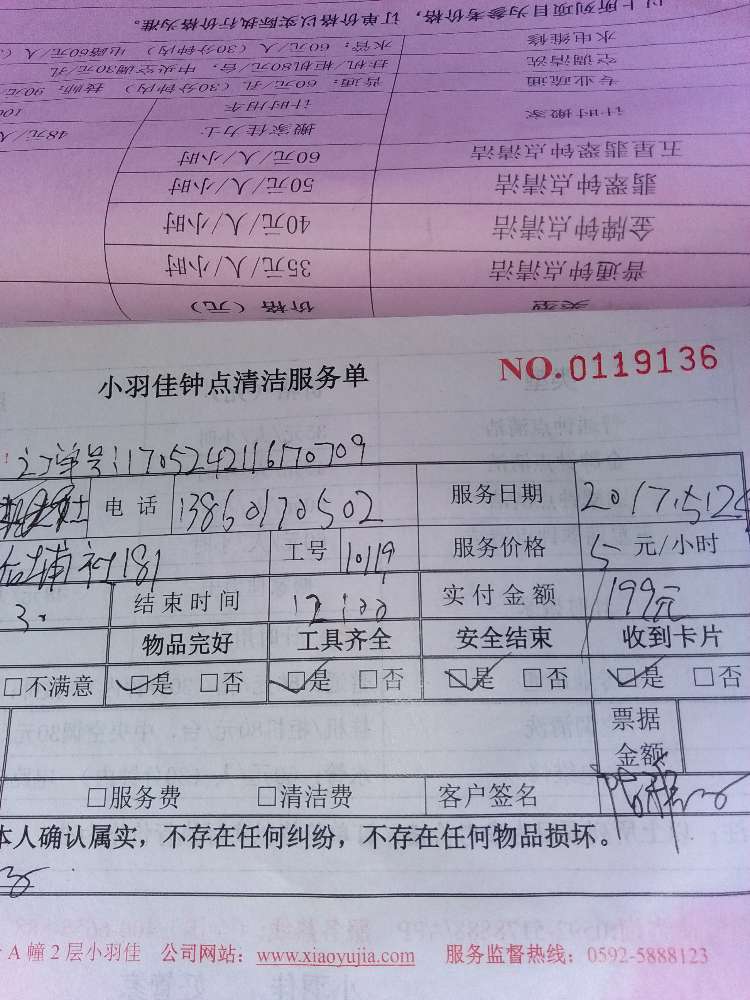 以上所列项目为参考价格，订单价格以实际执行价格为准。
水电维修 水管：60元/人（30分钟内） 电路60元/人（
空调清洗 挂机/柜机80元/台，中央空调30元/孔
专业疏通 普通：60元/孔（30分钟内） 技师：90元
计时搬家 计时用车 100
搬家佳力士 48元/人/
五星翡翠钟点清洁 60元/人/小时
翡翠钟点清洁 50元/人/小时
金牌钟点清洁 40元/人/小时
普通钟点清洁 35元/人/小时
类型 价格（元）
小羽佳钟点清洁服务单 NO.0119136
订单号:1705242116170709
电话 13860170502 服务日期 2017.5.24
埔社181 工号 10119 服务价格 5 元/小时
3. 结束时间 12:00 实付金额 199元
物品完好 工具齐全 安全结束 收到卡片
□不满意 □是 □否 □是 □否 □是 □否 □是 □否
票据金额
□服务费 □清洁费 客户签名
本人确认属实，不存在任何纠纷，不存在任何物品损坏。
A幢2层小羽佳 公司网站：www.xiaoyujia.com 服务监督热线：0592-5888123